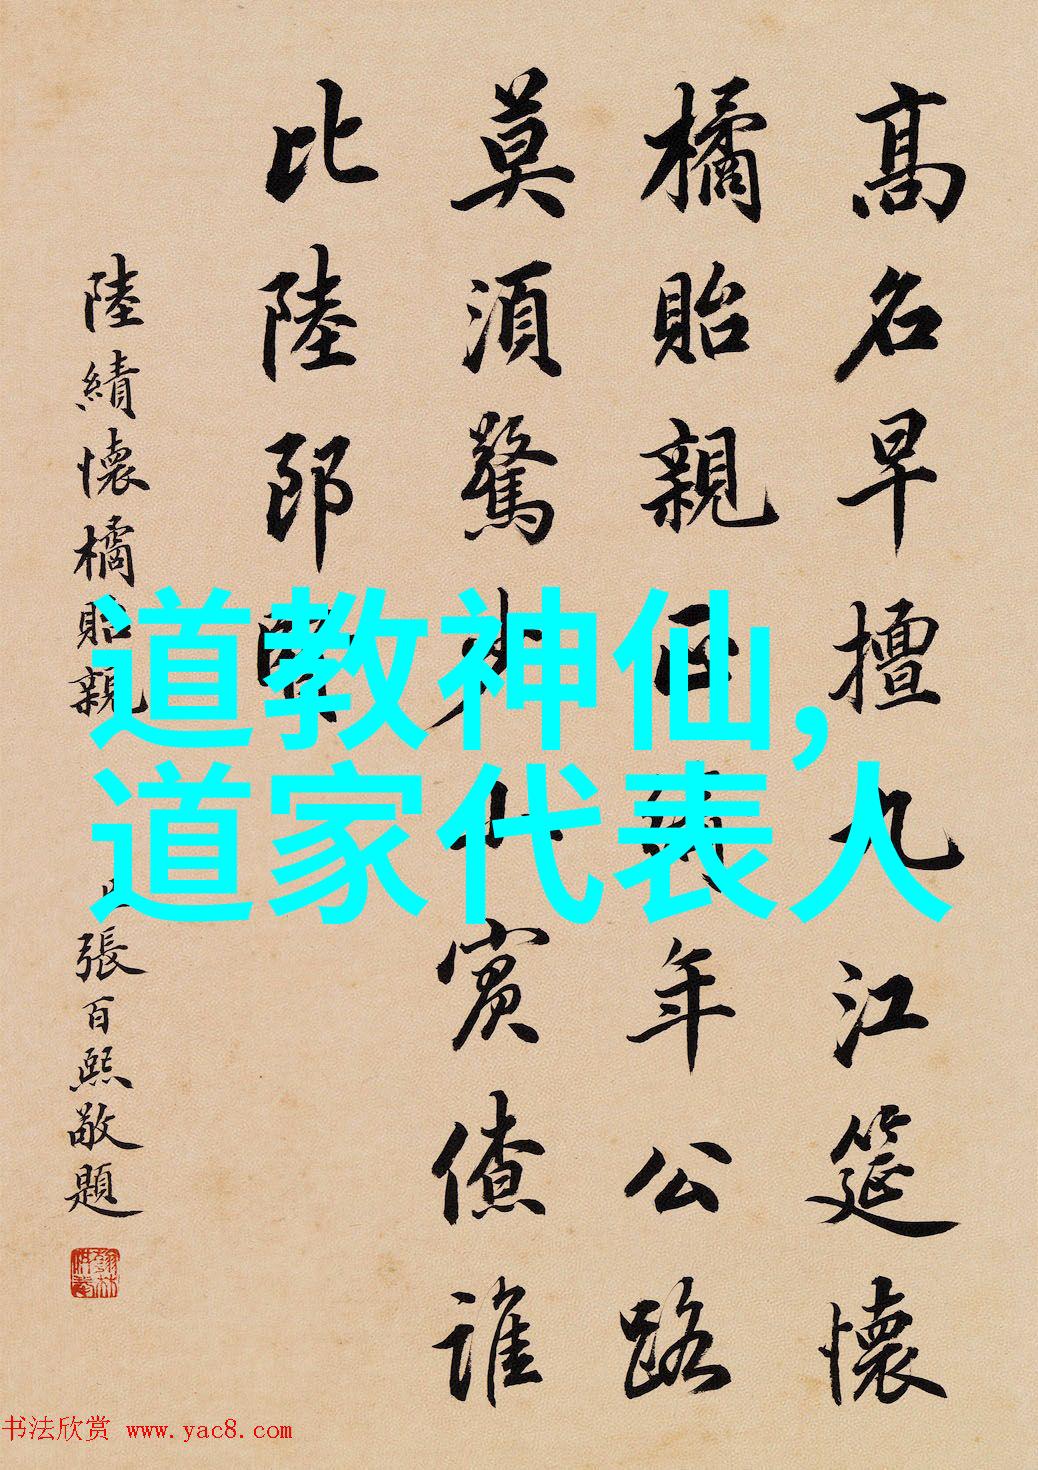 高名早擅九江筵懷
橘貽親正年公路
莫須驚少小賓僚誰
比陸郎賢
陸績懷橘貽親
臣張百熙敬題
道教神仙,
道家代表人
书法欣赏 www.yac8.com